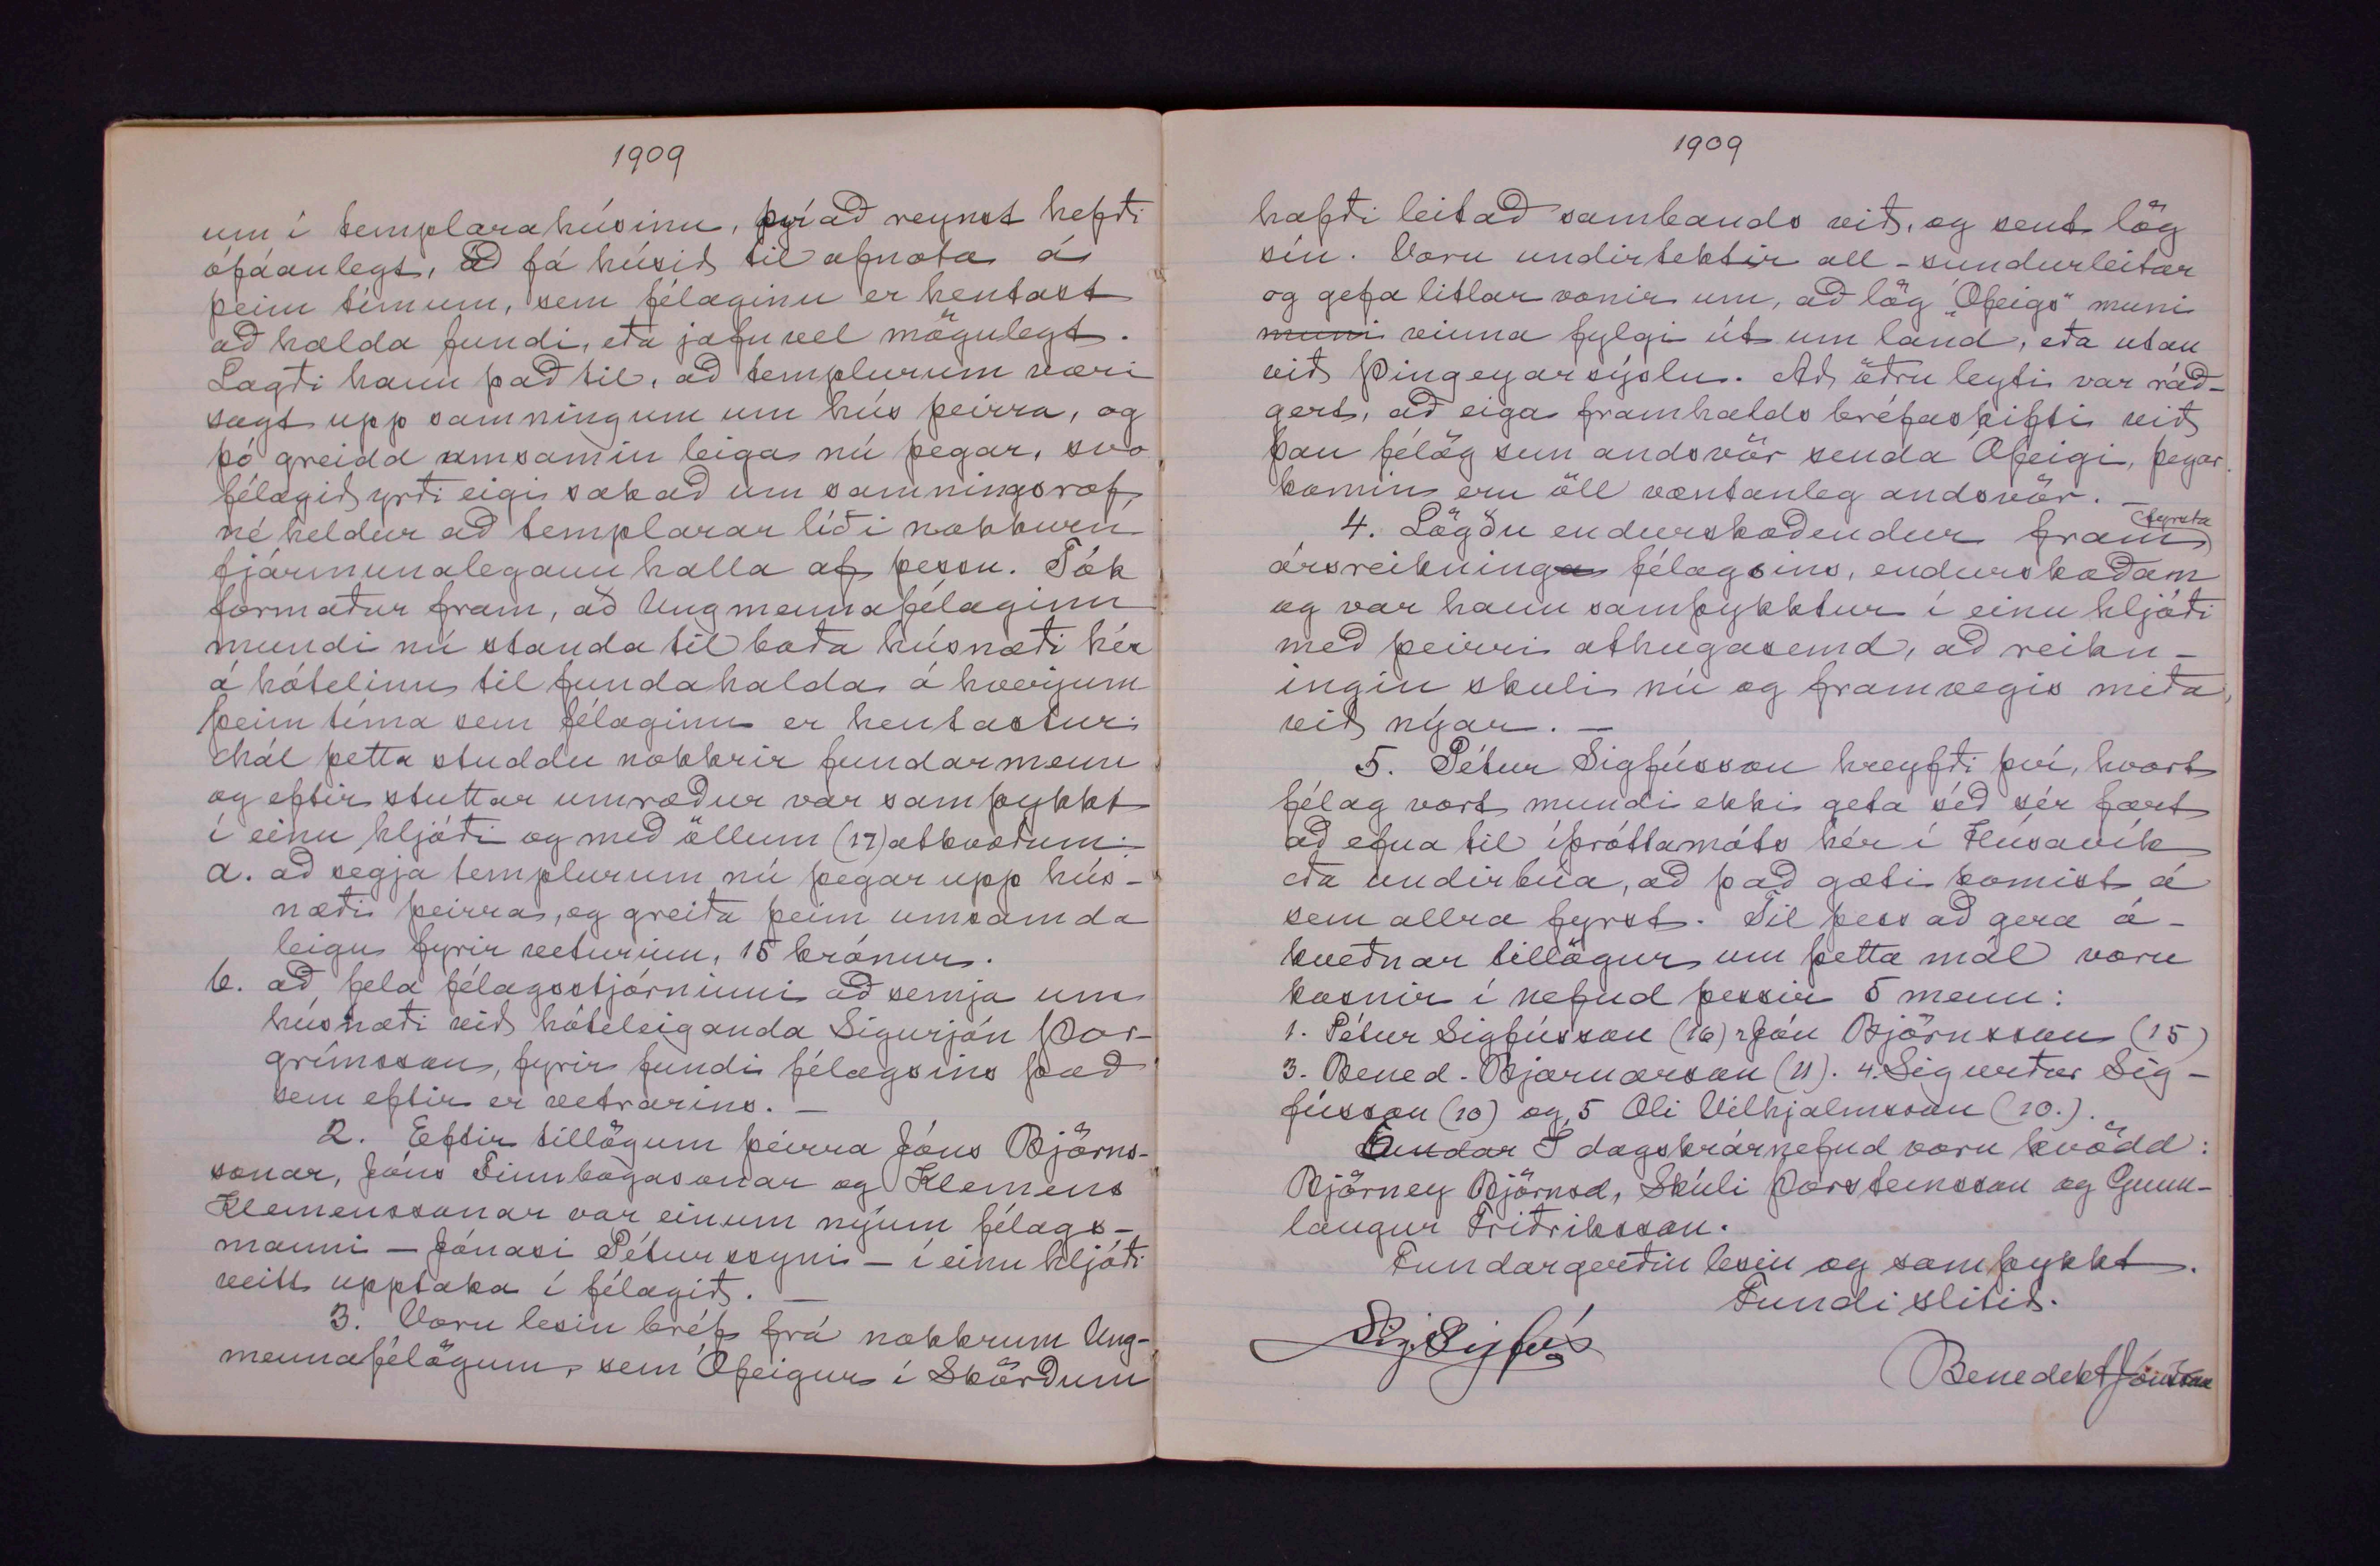 1909
um í templarahúsinu, því að reynst hefði
ófáanlegt, að fá húsið til afnota á
þeim tímum, sem félaginu er hentast
að halda fundi, eða jafnvel mögulegt.
Lagði hann það til, að templurum væri
sagt upp samningum um hús þeirra, og
þó greidd umsamin leiga nú þegar, svo
félagið yrði eigi sakað um samningsrof,
né heldur að templarar líði nokkurn
fjármunalegann halla af þessu. Tók
formaður fram, að Ungmennafélaginu
mundi nú standa til boða húsnæði hér
á hótelinu til fundahalda á hverjum
þeim tíma sem félaginu er hentastur.
Mál þetta studdu nokkrir fundarmenn
og eftir stuttar umræður var samþykkt
í einu hljóði og með öllum (17) atkvæðum:
a. að segja templurum nú þegar upp hús-
næði þeirra, og greiða þeim umsamda
leigu fyrir veturinn, 15 krónur.
b. að fela félagsstjórninni að semja um
húsnæði við hóteleiganda Sigurjón Þor-
grímsson, fyrir fundi félagsins það
sem eftir er vetrarins. —
2. Eftir tillögum þeirra Jóns Björns-
sonar, Jóns Finnbogasonar og Klemens
Klemenssonar var einum nýum félags-
manni — Jónasi Péturssyni — í einu hljóði
veitt upptaka í félagið. —
3. Voru lesin bréf frá nokkrum Ung-
mennafélögum, sem Ófeigur í Skörðum
1909
hafði leitað sambands við, og sent lög
sín. Voru undirtektir all-sundurleitar
og gefa litlar vonir um, að lög "Ófeigs" muni
muni vinna fylgi út um land, eða utan
við Þingeyarsýslu. Að öðru leyti var ráð-
gert, að eiga framhalds bréfaskifti við
þau félög sem andsvör senda Ófeigi, þegar
komin eru öll væntanleg andsvör. —
4. Lögðu endurskoðendur fram fyrsta
ársreikninga félagsins, endurskoðam
og var hann samþykktur í einu hljóði
með þeirri athugasemd, að reikn-
ingin skuli nú og framvegis miða
við nýar. —
5. Pétur Sigfússon hreyfði því, hvort
félag vort mundi ekki geta séð sér fært
að efna til íþróttamóts hér í Húsavík
eða undirbúa, að það gæti komist á
sem allra fyrst. Til þess að gera á-
kveðnar tillögur um þetta mál voru
kosnir í nefnd þessir 5 menn:
1. Pétur Sigfússon (16) 2 Jón Björnsson (15)
3. Bened. Bjarnarson (11). 4. Sigurður Sig-
fússon (10) og 5 Oli Vilhjalmsson (10.).
Fundar Í dagskrárnefnd voru kvödd:
Björney Björnsd, Skúli Þorsteinsson og Gunn-
laugur Friðriksson.
Fundargerðin lesin og samþykkt.
Fundi slitið.
Sig. Sigfús
Benedikt Jónsson